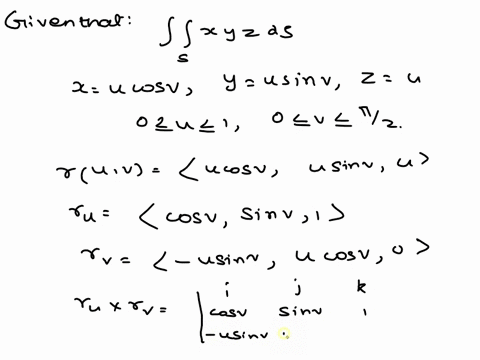 Given that: ∫∫ x y z ds
S
x = u cosv, y = u sinv, z = u
0 ≥ u ≤ 1, 0 ≤ v ≤ π/2.
r(u,v) = < u cosv, u sinv, u >
ru = < cosv, sinv, 1 >
rv = < -u sinv, u cosv, 0 >
i j k
ru × rv = | cosv sinv 1
-u sinv